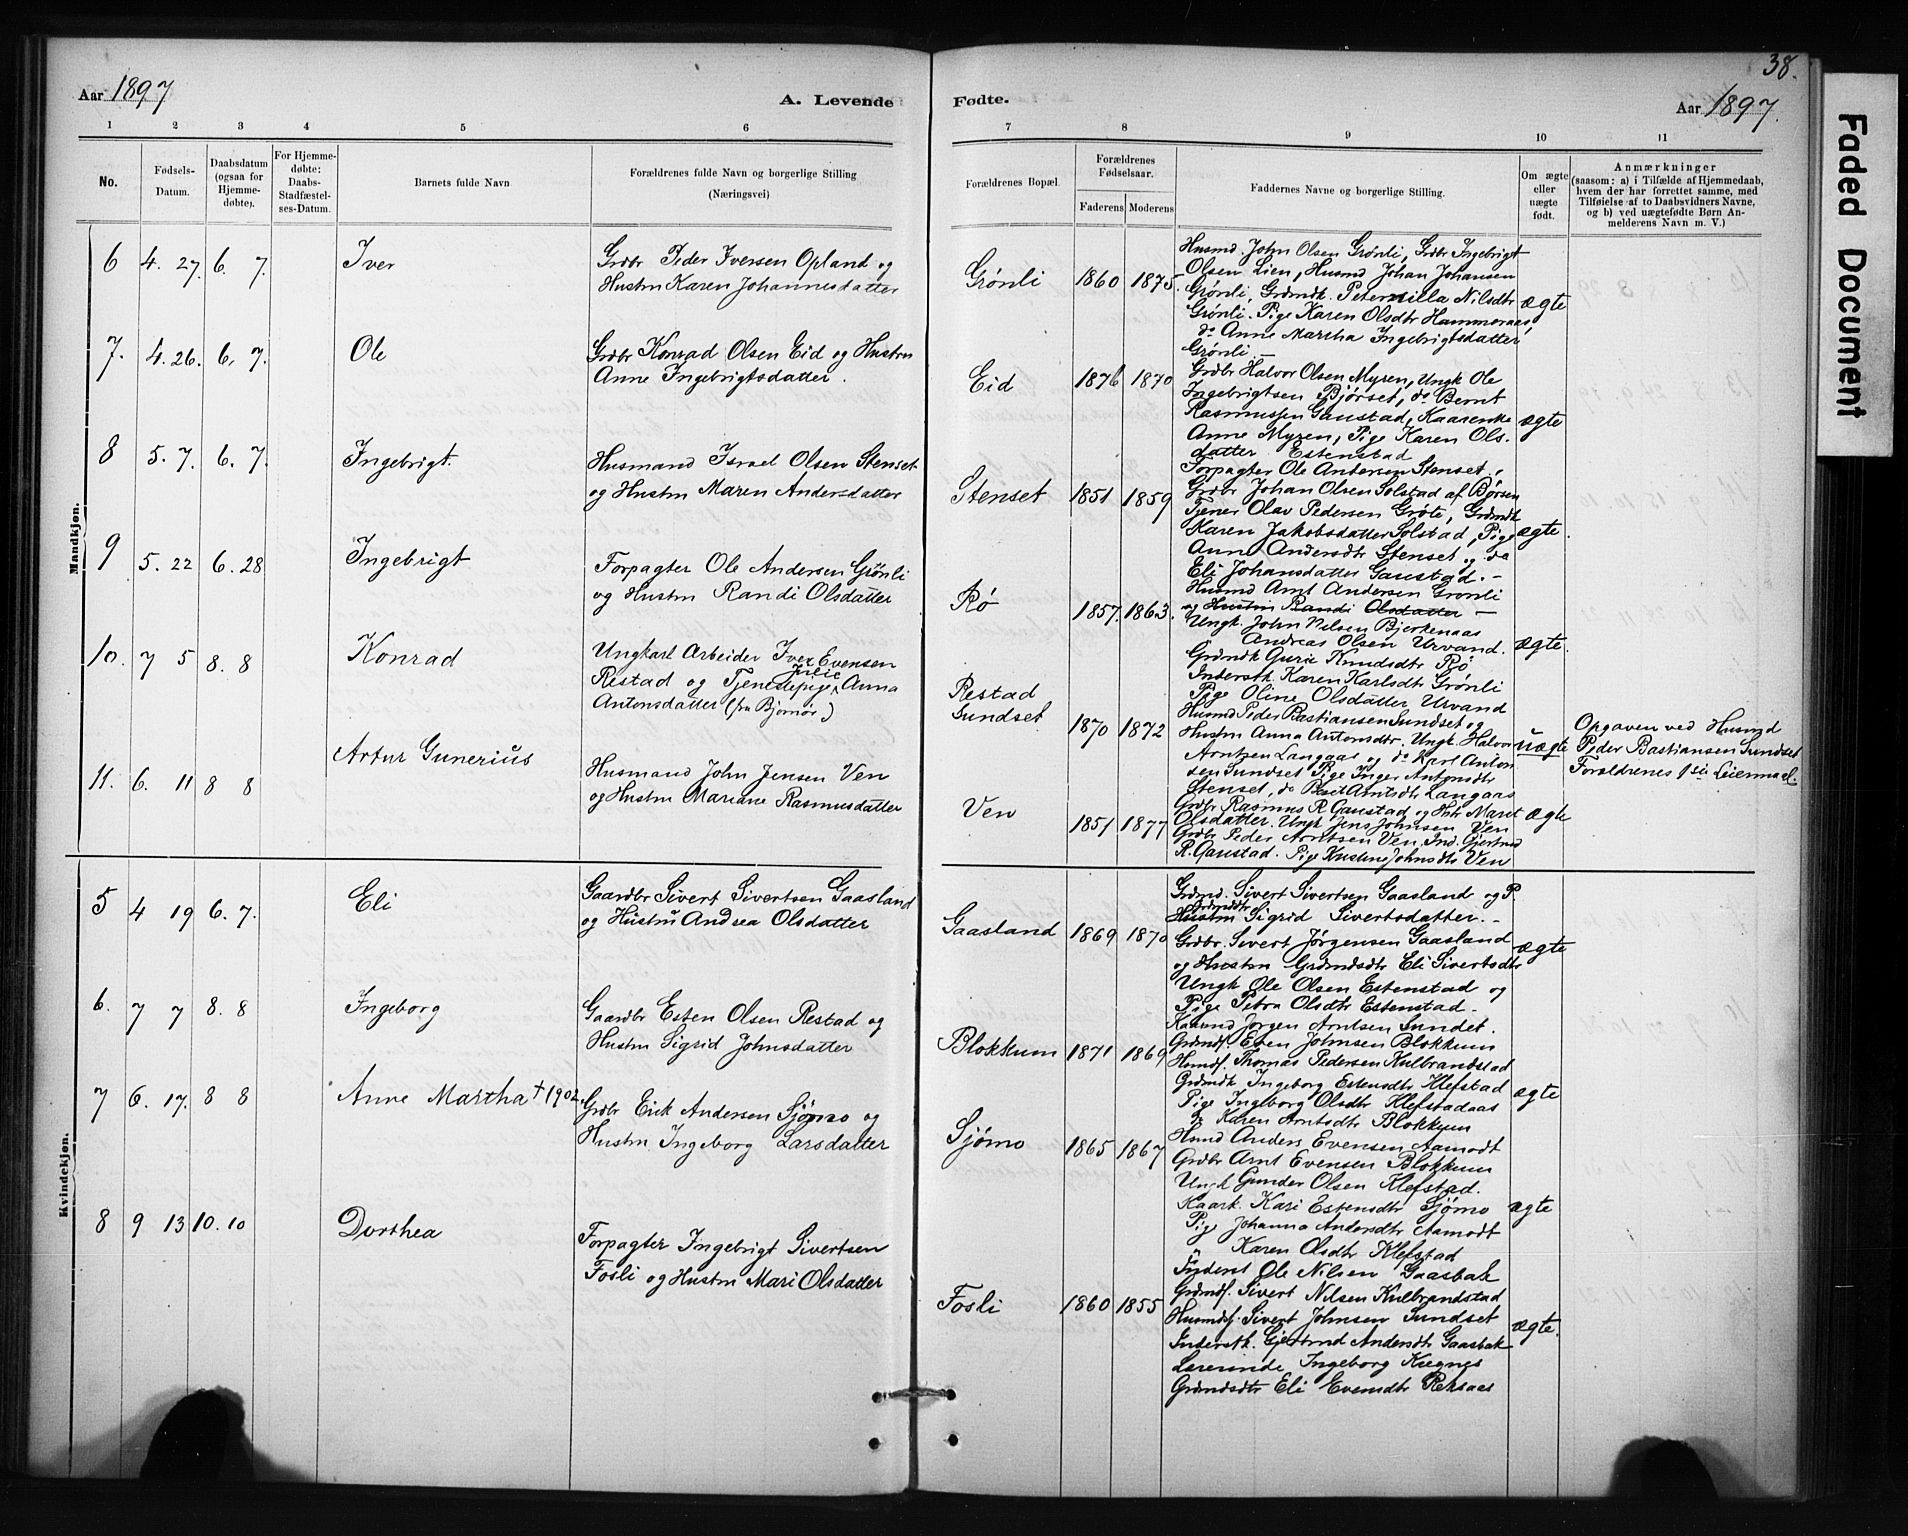 38.
Aar 1897
A. Levende
Fødte.
Aar 1897.
1 2 3 4 5 6 7 8 9 10 11
No.
Fødsels-
Datum.
Daabsdatum
(ogsaa for
Hjemme-
døbte).
For Hjemme-
døbte:
Daabs-
Stadfæstel-
ses-Datum.
Barnets fulde Navn
Forældrenes fulde Navn og borgerlige Stilling
(Næringsvei)
Forældrenes Bopæl.
Forældrenes
Fødselsaar.
Faderens Moderens
Faddernes Navne og borgerlige Stilling.
Om ægte
eller
uægte
født.
Anmærkninger
(saasom: a) i Tilfælde af Hjemmedaab,
hvem der har forrettet samme, med
Tilføielse af to Daabsvidners Navne,
og b) ved uægtefødte Børn An-
melderens Navn m. V.)
Mandkjøn.
6 4. 27. 6. 7. Iver
Grdbr Peder Iversen Opland og
Hustru Karen Johannesdatter
Grønli 1860 1875.
Husmd. John Olsen Grønli, Grdbr Ingebrigt
Olsen Lien, Husmd Johan Johansen
Grønli, Grdmdk. Peternilla Nilsdtr
Grønli. Pige Karen Olsdtr Hammeraas,
do Anne Martha Ingebrigtsdatter
Grønli. —
ægte
7. 4. 26. 6. 7. Ole
Grdbr Konrad Olsen Eid og Hustru
Anne Ingebrigtsdatter.
Eid 1876 1870
Grdbr Halvor Olsen Myren, Ungk Ole
Ingebrigtsen Bjørset, do Bernt
Rasmussen Gaustad, Kaarenke
Anne Myren, Pige Karen Ols-
datter Estenstad
ægte
8 5. 7. 6. 7. Ingebrigt.
Husmand Israel Olsen Stenset
og Hustru Maren Andersdatter
Stenset 1851 1859
Forpagter Ole Andersen Stenset,
Grdbr Johan Olsen Solstad af Børsen
Tjener Olav Pedersen Grøte, Grdmdk
Karen Jakobsdatter Solstad, Pige
Anne Andersdtr Stenset og do
Eli Johansdatter Gaustad. —
ægte.
9 5. 22 6. 28 Ingebrigt
Forpagter Ole Andersen Grønli
og Hustru Randi Olsdatter
Rø 1857. 1863.
Husmd Arnt Andersen Grønli
og Hustru Randi Olsdatter —
Ungk. John Nilsen Bjerkenaas
Andreas Olsen Urvand.
Grdmdk Guri Knudsdtr Rø
Inderstk. Karen Karlsdtr Grønli
Pige Oline Olsdatter Urvand
ægte.
10. 7 5 8. 8 Konrad
Ungkarl Arbeider Iver Evensen
Restad og Tjenestepige Julie Anna
Antonsdatter (fra Bjørnør)
Restad
Sundset 1870 1872
Husmd Peder Bastiansen Sundset og
Hustru Anna Antonsdtr. Ungk Halvor
Arntzen Langaas og do Karl Anton
sen Sundset Pige Inger Antonsdtr
Stenset, do Berit Arntsdtr Langaas
uægte
Opgaven ved Husmd
Peder Bastiansen Sundset
Foraldrenes 1ste Leiermaal.
11. 6. 11 8 8 Artur Gunerius
Husmand John Jensen Ven
og Hustru Mariane Rasmusdatter
Ven 1851 1877
Grdbr Rasmus R. Gaustad og Hstr Maret
Olsdatter. Ungk Jens Johnsen Ven
Grdbr Peder Arntsen Ven, Ind. Gjertrud
R. Gaustad. Pige Kristine Johnsdtr Ven
ægte
Kvindekjøn.
5 4 19 6. 7. Eli
Gaardbr Sivert Sivertsen Gaasland
og Hustru Andrea Olsdatter
Gaasland 1869 1870
Grdmd. Sivert Sivertsen Gaasland og P.
Hustru Grdmdtr Sigrid Sivertsdatter. —
Grdbr. Sivert Jørgensen Gaasland
og Hustru Grdmdsdtr Eli Sivertsdtr
Ungk Ole Olsen Estenstad og
Pige Petra Olsdtr Estenstad.
ægte
6. 7 7 8. 8 Ingeborg
Gaardbr Esten Olsen Restad og
Hustru Sigrid Johnsdatter
Blokkum 1871 1869
Kaarmd Jørgen Arntsen Sundet.
Grdmdf. Even Johnsen Blokkum
Husmdf. Thomas Pedersen Kulbrandstad
Grdmdk Ingeborg Estensdtr Klefstad
Pige Ingeborg Olsdtr Klefstadaas
do Karen Arntsdtr Blokkum
ægte
7 6. 17. 8 8 Anne Martha † 1902.
Grdbr Eirik Andersen Sjømo og
Hustru Ingeborg Larsdatter
Sjømo 1865 1867
Husmd Anders Evensen Aamodt
Grdbr Arnt Evensen Blokkum
Ungk Gunder Olsen Klefstad.
Kaark. Kari Estensdtr Sjømo
Pige Johanna Andersdtr Aamodt
" Karen Olsdtr Klefstad
ægte
8 9 13 10. 10 Dorthea
Forpagter Ingebrigt Sivertsen
Fosli og Hustru Mari Olsdatter
Fosli 1860 1855
Inderst Ole Nilsen Gaasbak
Grdmdf. Sivert Nilsen Kulbrandstad
Husmdf. Sivert Johnsen Sundset
Inderstk. Gjertrud Andersdtr Gaasbak
Lærerinde Ingeborg Kregnes
Grdmdsdtr Eli Evensdtr Reksaas
ægte.
Faded Document